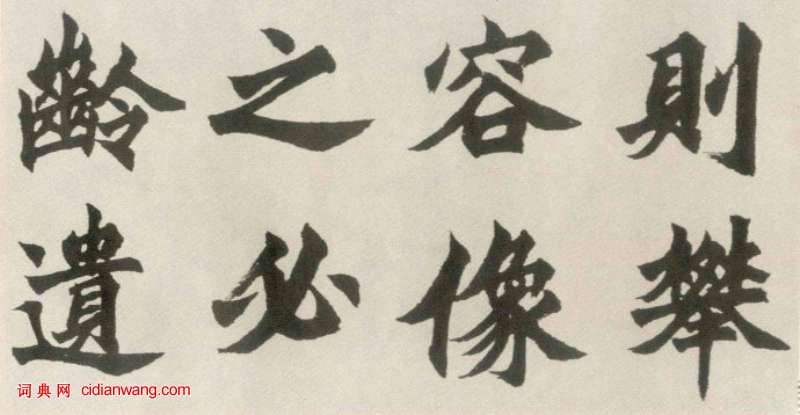 則攀
容像
之必
齡遺
词典网 cidianwang.com